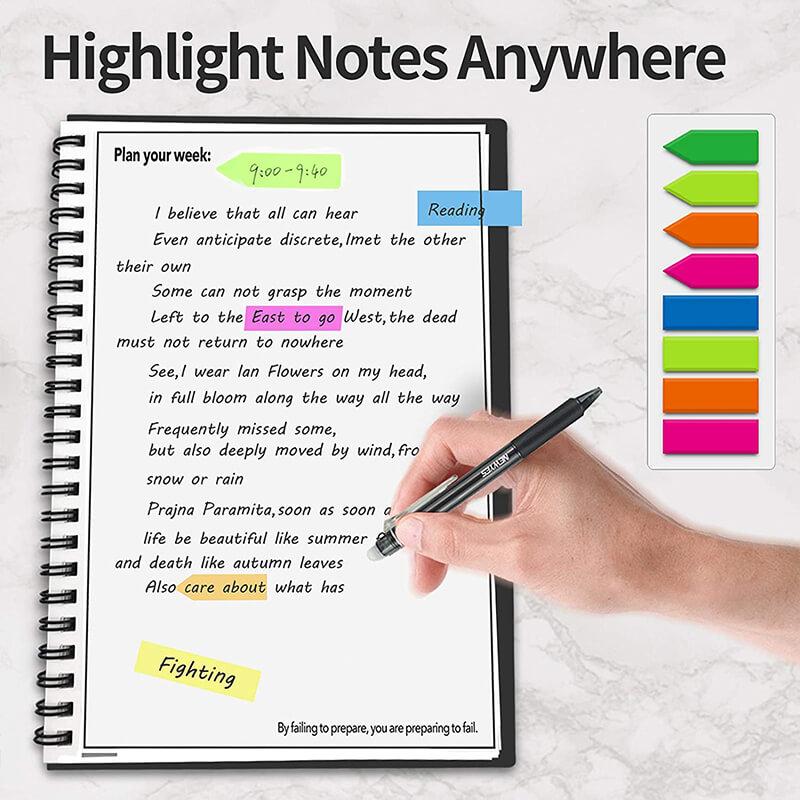 Highlight Notes Anywhere
Plan your week:
9:00-9:40
Reading
I believe that all can hear
Even anticipate discrete,Imet the other
their own
Some can not grasp the moment
Left to the East to go West,the dead
must not return to nowhere
See,I wear Ian Flowers on my head,
in full bloom along the way all the way
Frequently missed some,
but also deeply moved by wind,fro
snow or rain
Prajna Paramita,soon as soon a
life be beautiful like summer
and death like autumn leaves
Also care about what has
NEWYES
Fighting
By failing to prepare, you are preparing to fail.